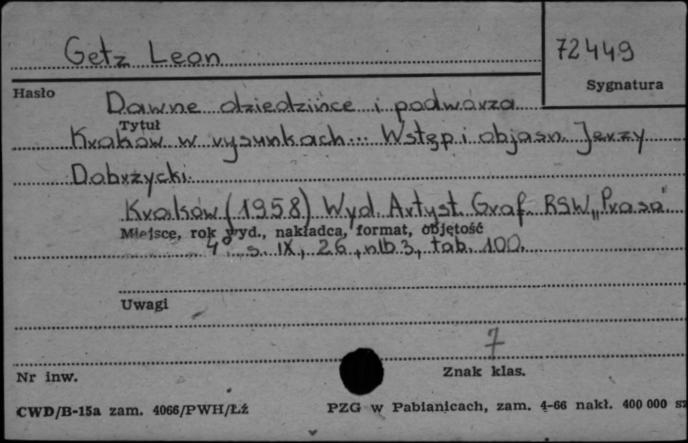 Getz Leon
72449
Hasło
Sygnatura
Dawne dziedzińce i podwórza
Tytuł
Kraków w rysunkach... Wstęp i objaśn. Jerzy
Dobrzycki.
Kraków (1958) Wyd. Artyst. Graf. RSW „Prasa"
Miejsce, rok wyd., nakładca, format, objętość
4° s. IX, 26, nlb. 3, tab. 100.
Uwagi
7
Nr inw.
Znak klas.
CWD/B-15a zam. 4066/PWH/Łź
PZG w Pabianicach, zam. 4-66 nakł. 400 000 sz